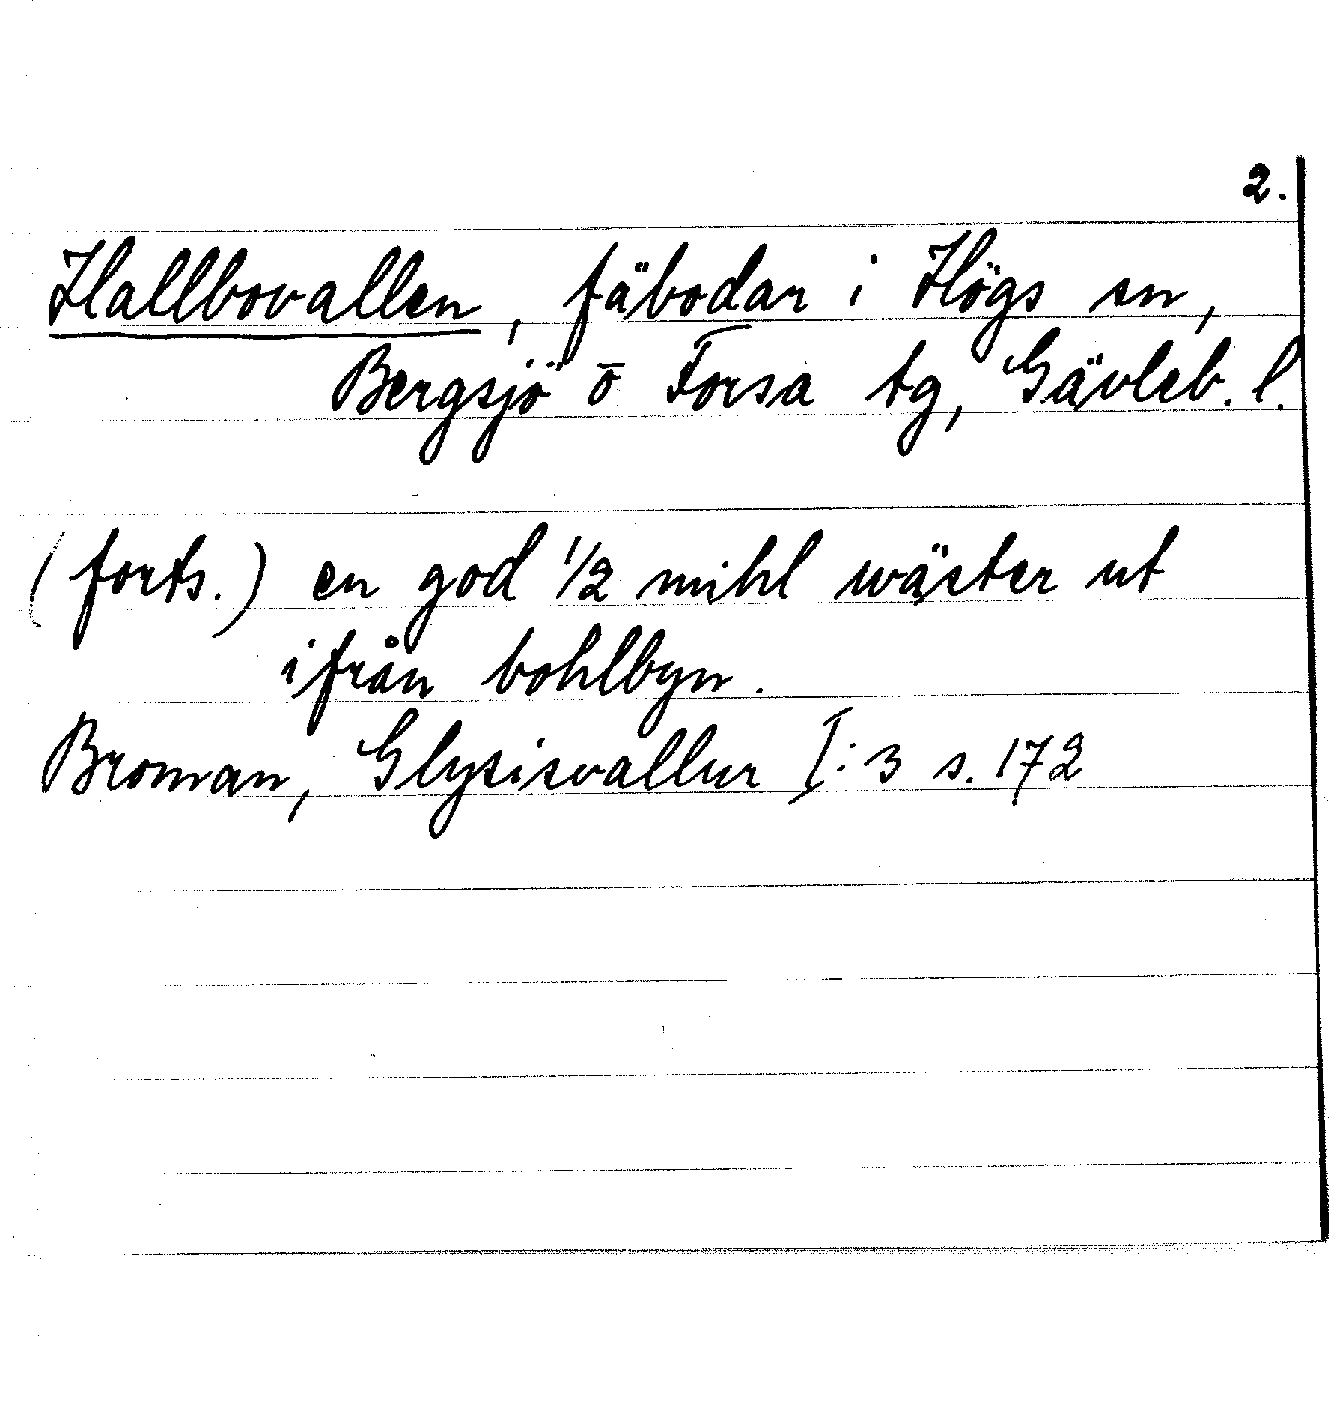 2.
Hallbovallen, fäbodar i Högs sn,
Bergsjö o Forsa tg, Gävleb. l.
(forts.) en god 1/2 mihl wäster ut
ifrån bohlbyn.
Broman, Glysisvallur I:3 s. 172